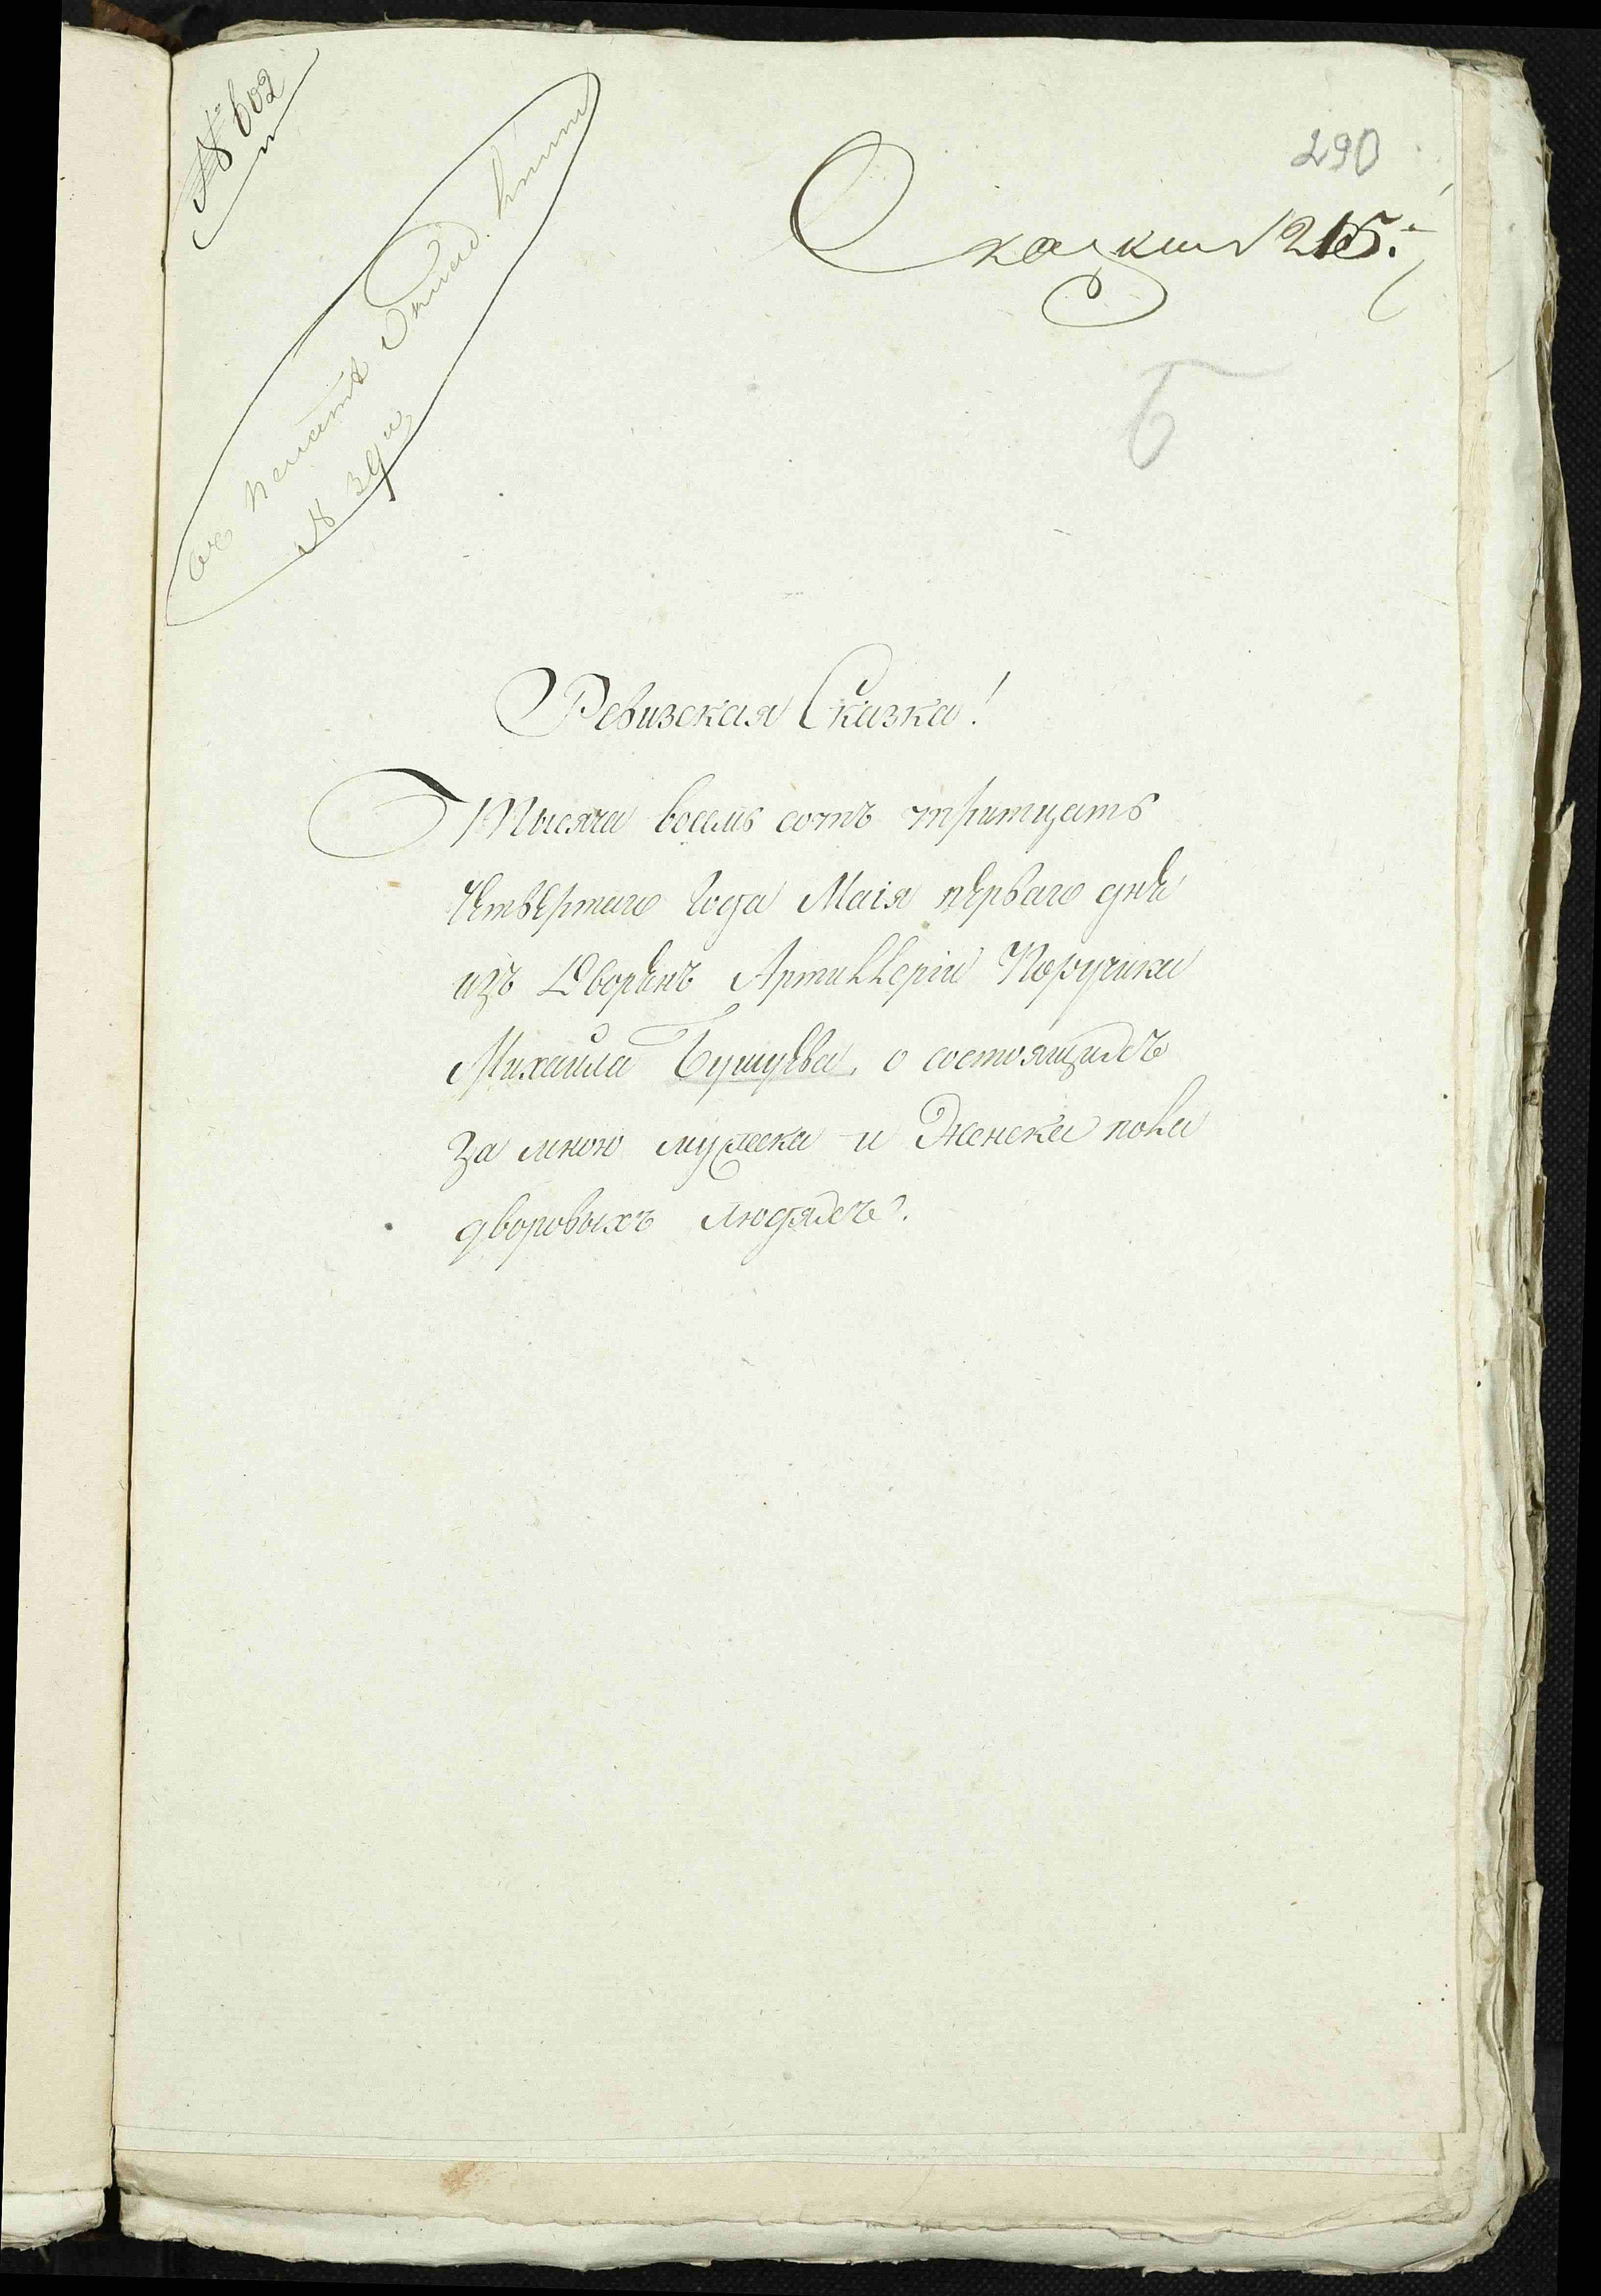 № 602
290
Сказки № 215.
Б
№ 39
Ревизская Сказка!
Тысяча восемь сотъ тритцать
четвертаго Года Маія перваго дня
изъ Дворянъ Артиллеріи Поручика
Михаила Бушуева, о состоящихъ
за мною мужеска и Женска пола
дворовыхъ людяхъ.